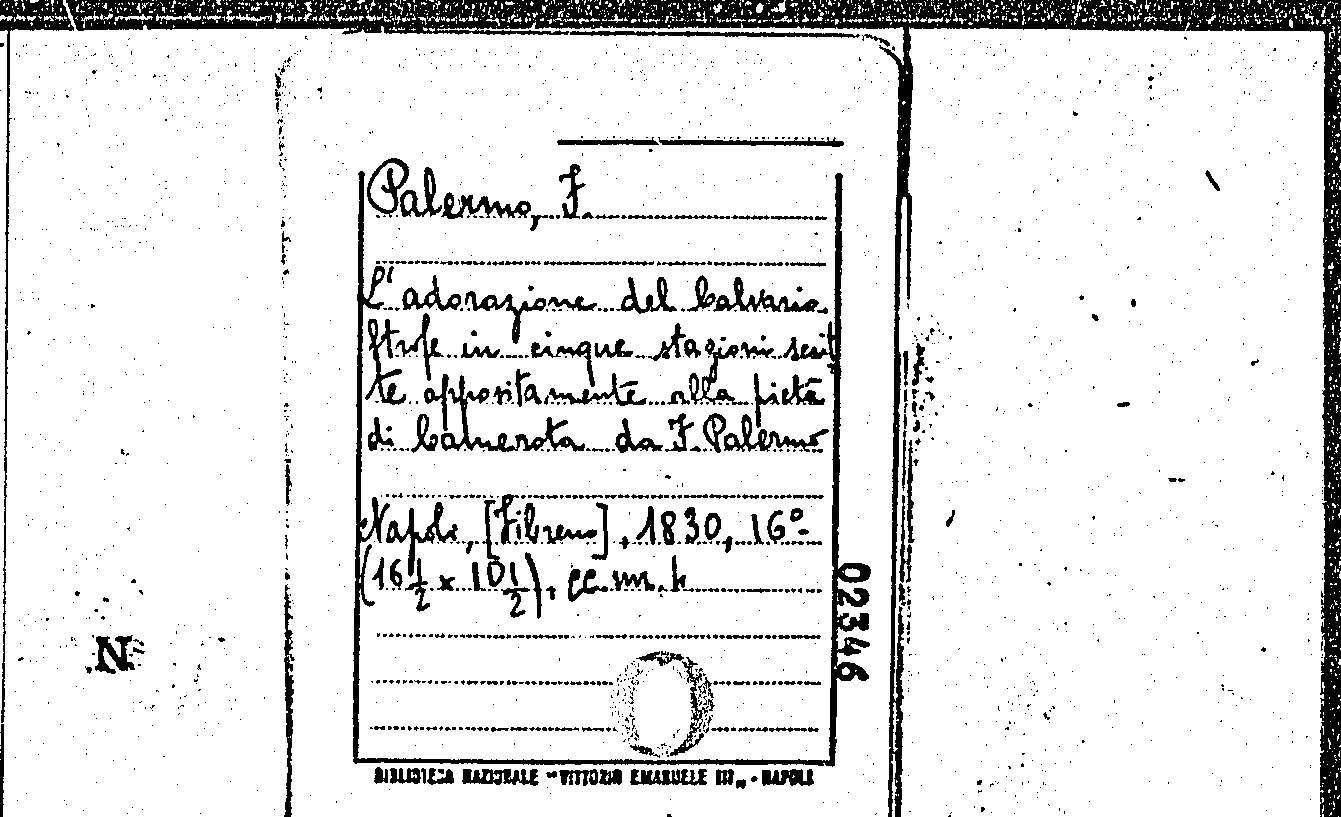 Palermo, F.
L'adorazione del Calvario.
Strofe in cinque stazioni scrit
te appositamente alla pietà
di Camerota da F. Palermo
Napoli, [Fibreno], 1830, 16º-
(16½ x 10½), cc.nn.
02346
N
BIBLIOTECA NAZIONALE "VITTORIO EMANUELE III„ - NAPOLI